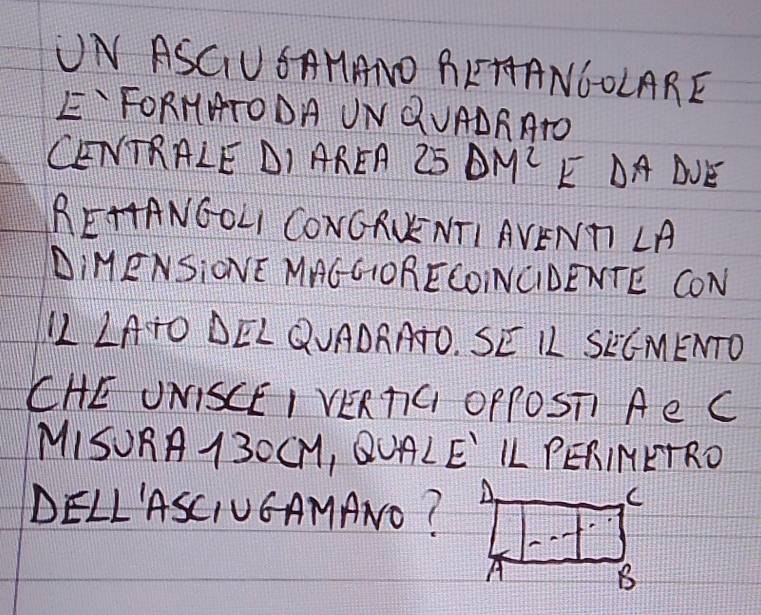 UN ASCIUGAMANO RETTANGOLARE
E` FORMATO DA UN QUADRATO
CENTRALE DI AREA 25 DM² E DA DUE
RETTANGOLI CONGRUENTI AVENTI LA
DIMENSIONE MAGGIORE COINCIDENTE CON
IL LATO DEL QUADRATO. SE IL SEGMENTO
CHE UNISCE I VERTICI OPPOSTI A e C
MISURA 130CM, QUAL E` IL PERIMETRO
DELL'ASCIUGAMANO?
D C
A B